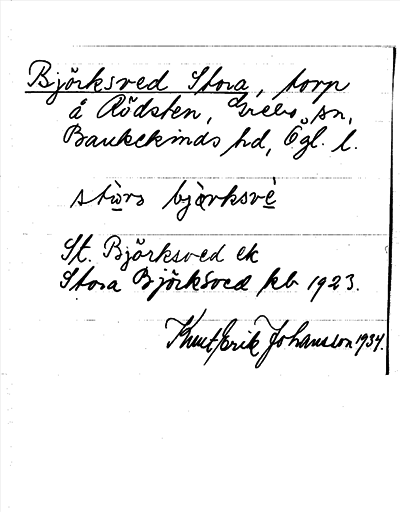 Björksved Stora, torp
å Rödsten, Grebo sn,
Bankekinds hd, Ögl. l.
stòrs bjærksvè
St. Björksved ek
Stora Björksved kb 1923.
Knut Erik Johansson 1934.